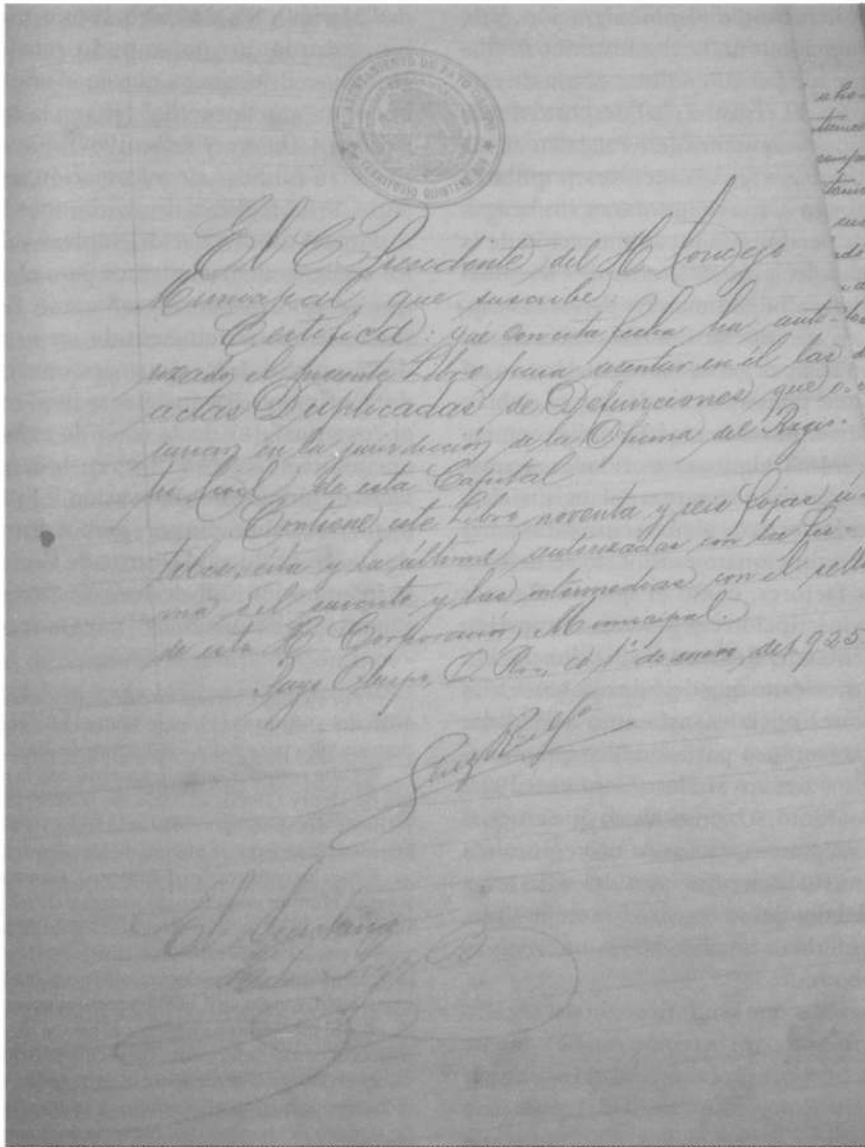 H. AYUNTAMIENTO DE PAYO OBISPO
TERRITORIO QUINTANA ROO
El C. Presidente del H. Concejo
Municipal, que suscribe
Certifica: que con esta fecha ha auto-
rizado el presente Libro para asentar en él las
actas Duplicadas de Defunciones que o-
curran en la jurisdicción de la Oficina del Regis-
tro Civil de esta Capital.
Contiene este Libro noventa y seis fojas ú-
tiles, esta y la última autorizadas con la fir-
ma del suscrito y las intermedias con el sello
de esta H. Corporación Municipal.
Payo Obispo, Q. Roo, a 1º de enero de 1925.
El Secretario